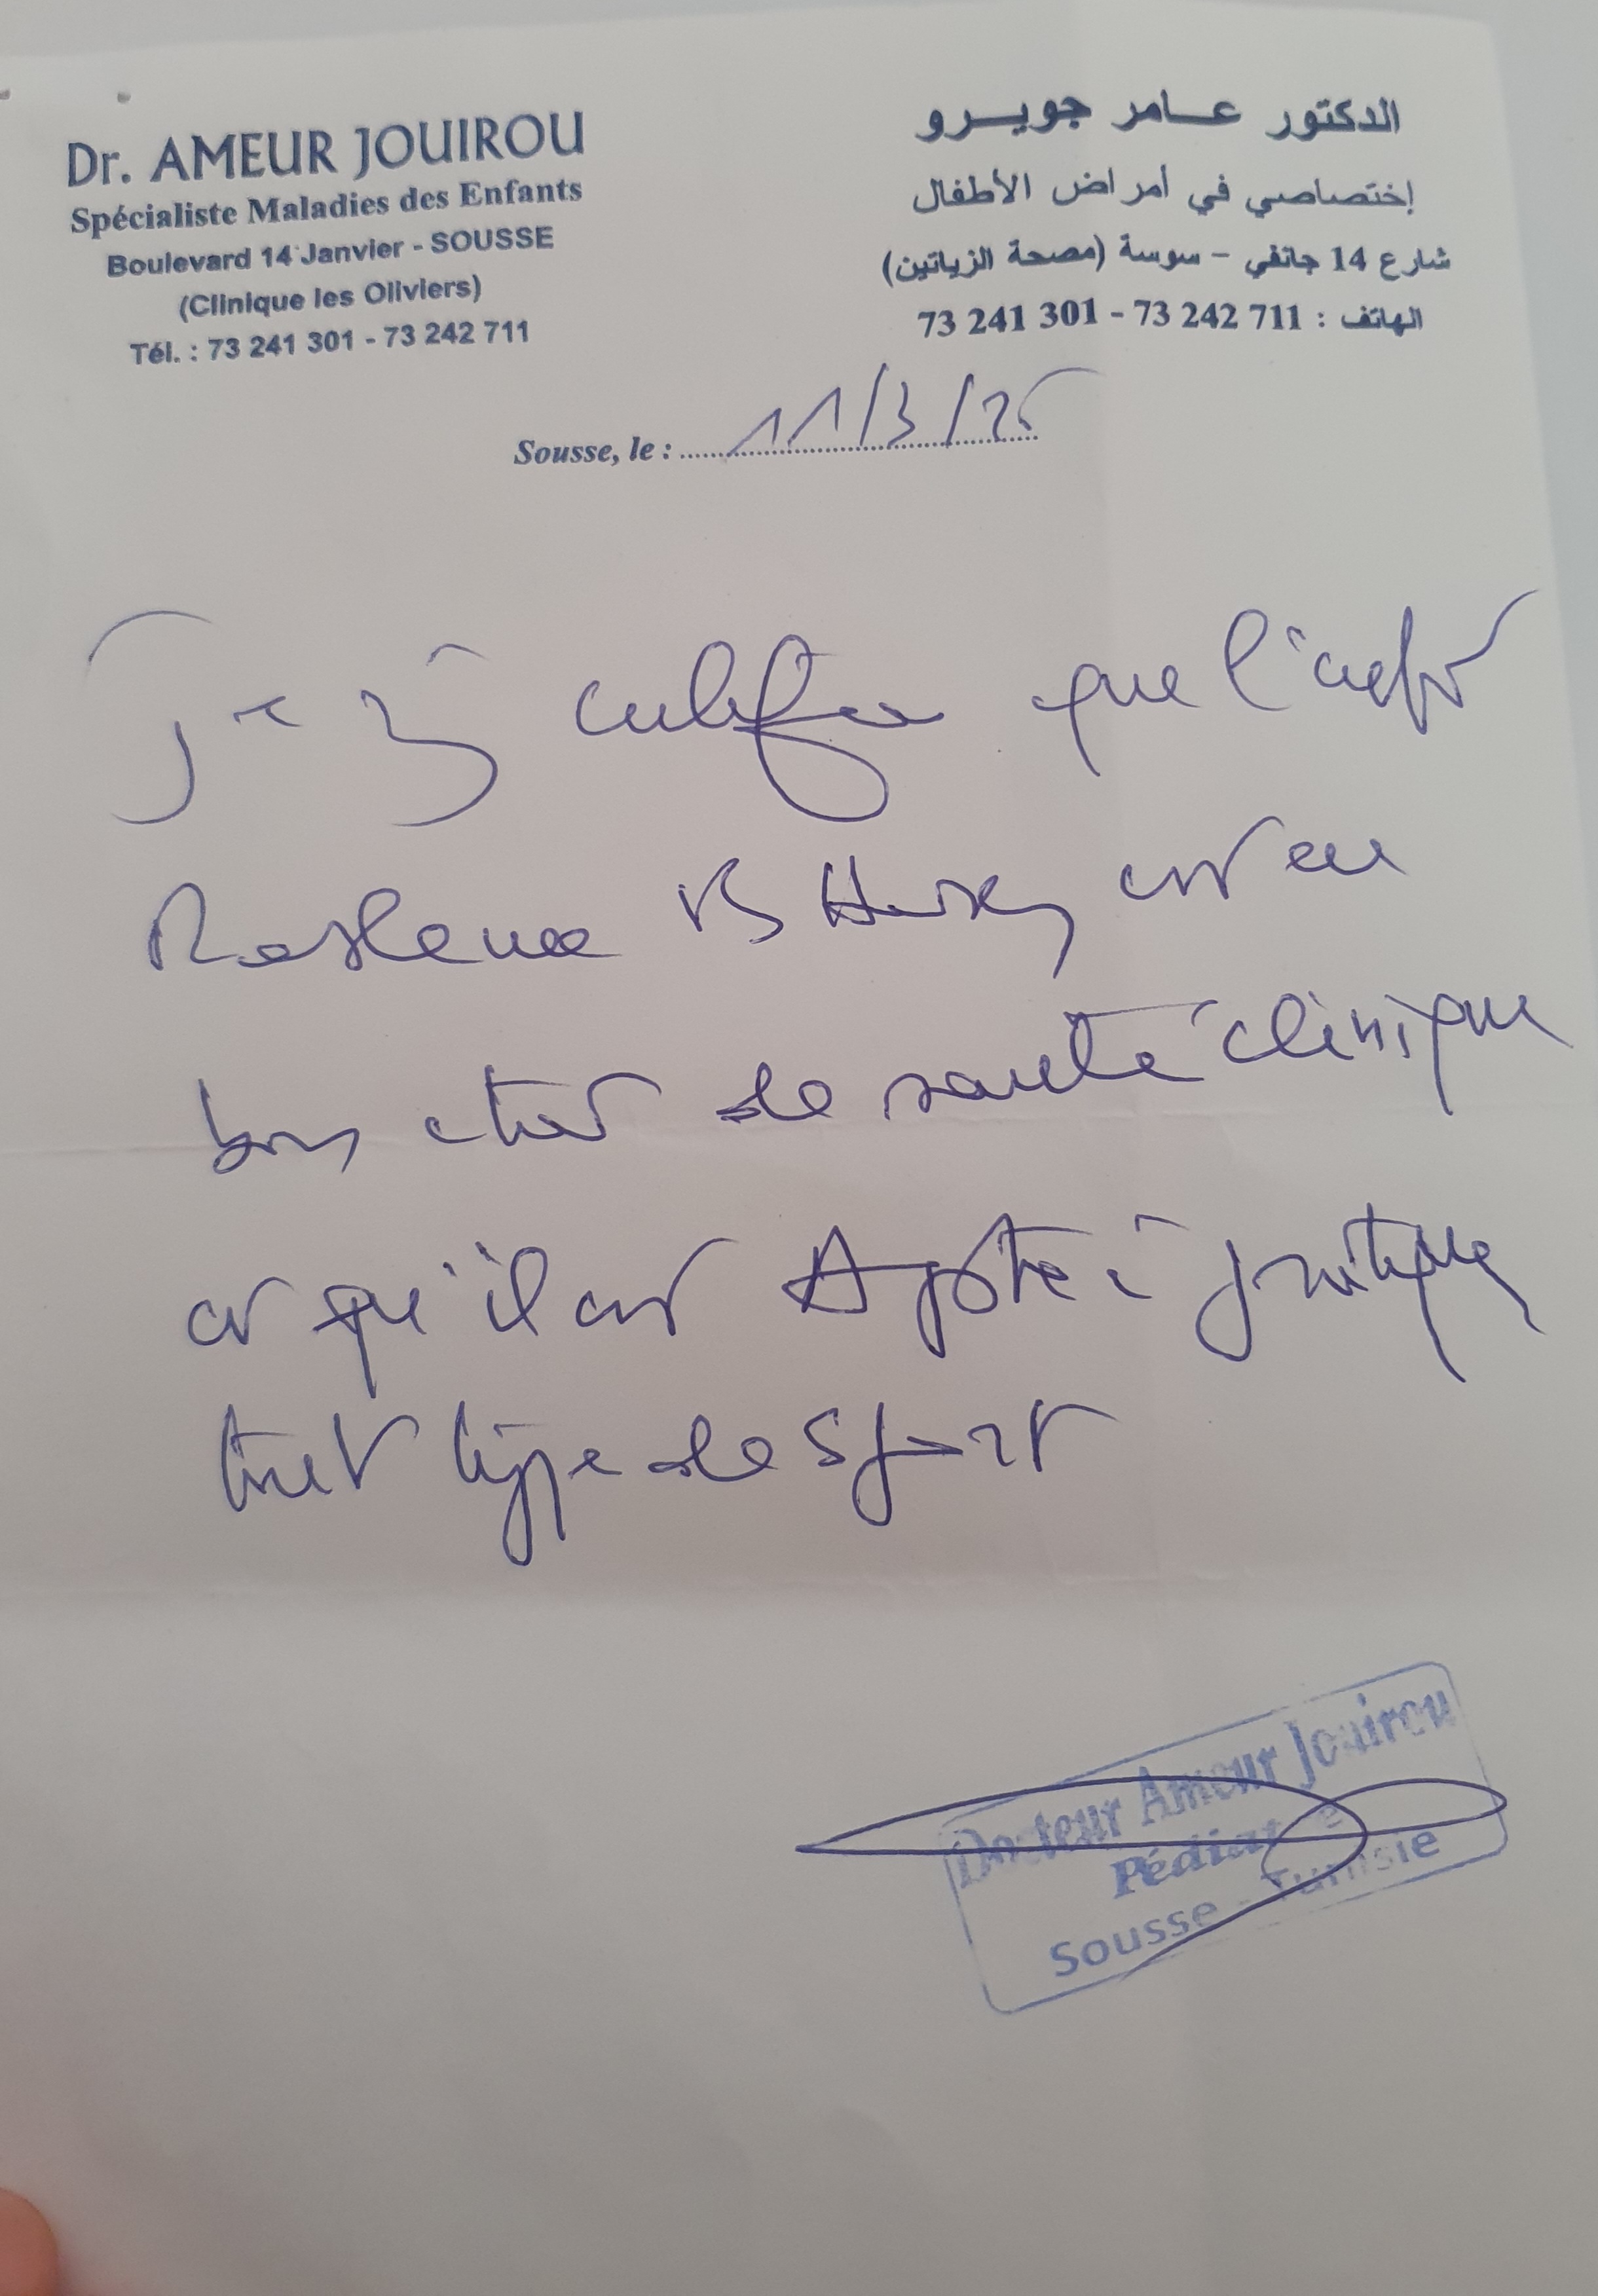 Dr. AMEUR JOUIROU
Spécialiste Maladies des Enfants
Boulevard 14 Janvier - SOUSSE
(Clinique les Oliviers)
Tél. : 73 241 301 - 73 242 711
الدكتور عــامر جويــرو
إختصاصي في أمراض الأطفال
شارع 14 جانفي - سوسة (مصحة الزياتين)
الهاتف : 73 242 711 - 73 241 301
Sousse, le : 11/3/25
Je certifie que l'enfant
est en
bon état de santé clinique
et qu'il est Apte à pratiquer
tout type de sport
Docteur Ameur Jouirou
Pédiatre
Sousse - Tunisie